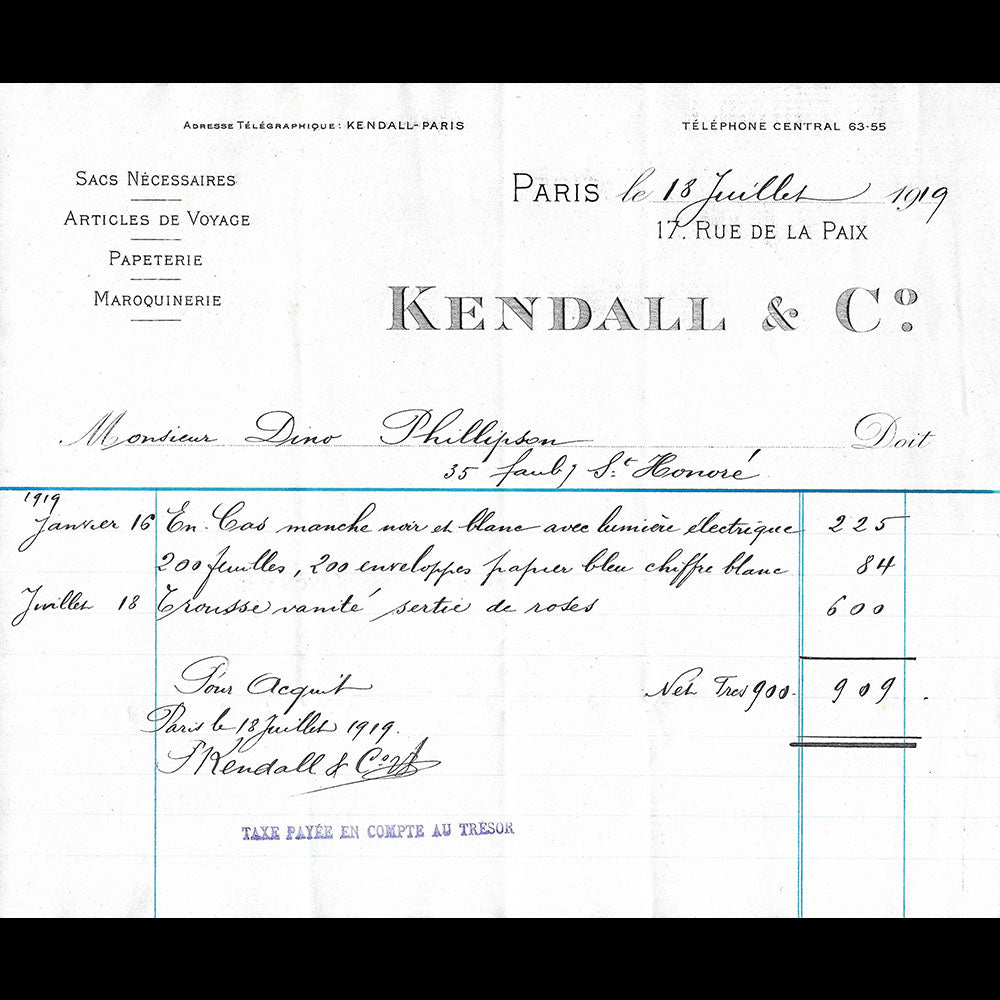 Adresse Télégraphique: KENDALL-PARIS
TÉLÉPHONE CENTRAL 63-55
Sacs Nécessaires
Articles de Voyage
Papeterie
Maroquinerie
Paris le 18 Juillet 1919
17, Rue de la Paix
Kendall & Co.
Monsieur Dino Phillipson Doit
35 faubg St. Honoré
1919
Janvier 16 En-Cas manche noir et blanc avec lumière électrique 225
200 feuilles, 200 enveloppes papier bleu chiffre blanc 84
Juillet 18 Trousse vanité sertie de roses 600
Pour Acquit Net Frcs 900. 909.
Paris le 18 Juillet 1919.
Kendall & Co.
TAXE PAYÉE EN COMPTE AU TRESOR